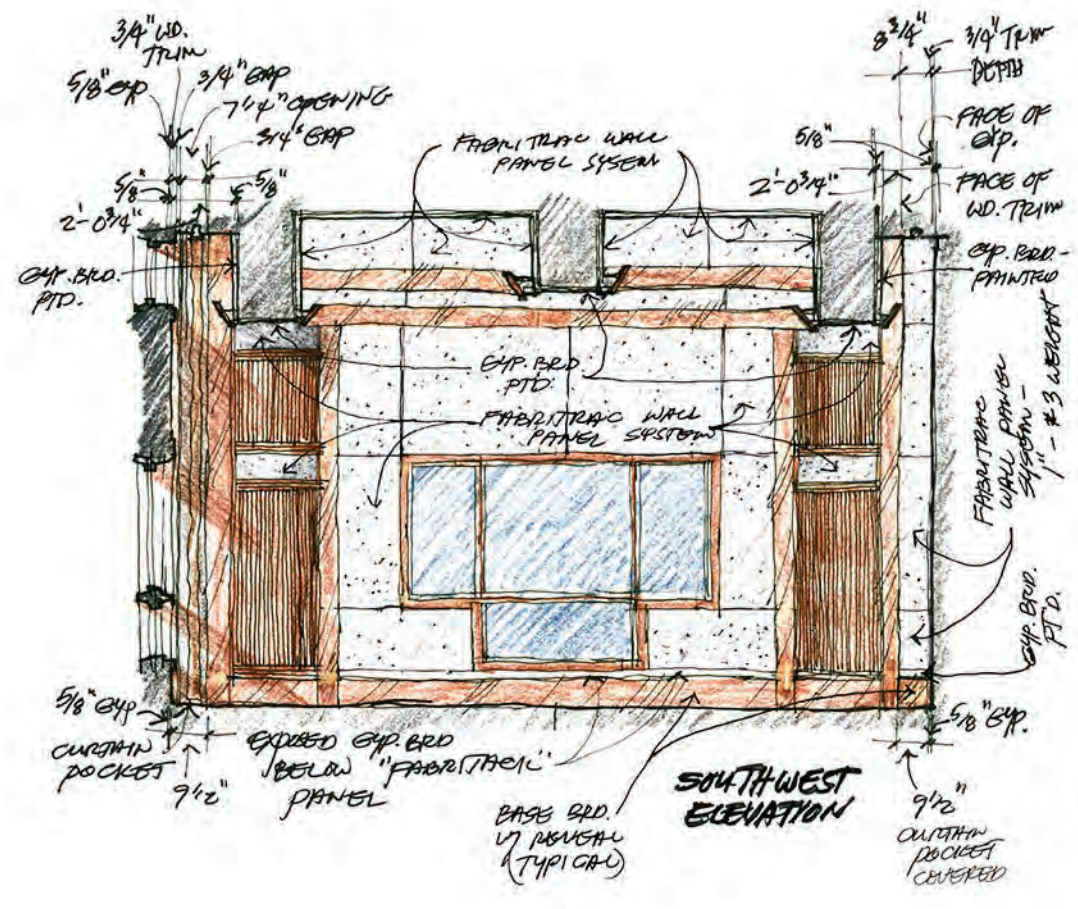 3/4" WD.
TRIM
5/8" GYP
3/4" GAP
7 1/4" OPENING
3/4" GAP
5/8"
5/8"
2'-0 3/4"
GYP. BRD.
PTD.
FABRITRAC WALL
PANEL SYSTEM
8 3/4"
3/4" TRIM
DEPTH
5/8"
FACE OF
GYP.
2'-0 3/4"
FACE OF
WD. TRIM
GYP. BRD. -
PAINTED
GYP. BRD.
PTD.
FABRITRAC WALL
PANEL SYSTEM
FABRITRAC
WALL PANEL
SYSTEM -
1" - #3
GYP. BRD.
PTD.
5/8" GYP.
CURTAIN
POCKET
9 1/2"
EXPOSED GYP. BRD
BELOW "FABRITRACK"
PANEL
BASE BRD.
W/ REVEAL
(TYPICAL)
SOUTHWEST
ELEVATION
5/8" GYP.
9 1/2"
CURTAIN
POCKET
COVERED